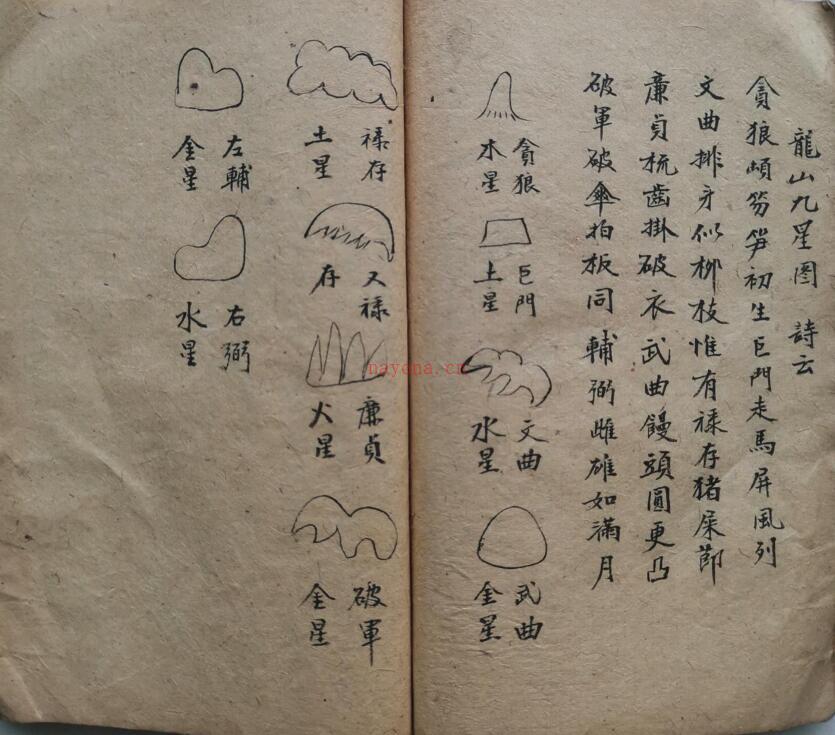 龍山九星图 詩云
貪狼頓笏笋初生巨門走馬屏風列
文曲排牙似柳枝惟有祿存猪屎節
廉貞梳齒掛破衣武曲饅頭圓更凸
破軍破傘拍板同 輔弼雌雄如滿月
貪狼
水星
巨門
土星
文曲
水星
武曲
金星
祿存
土星
又祿
存
廉貞
火星
破軍
金星
左輔
金星
右弼
水星
nayona.cn